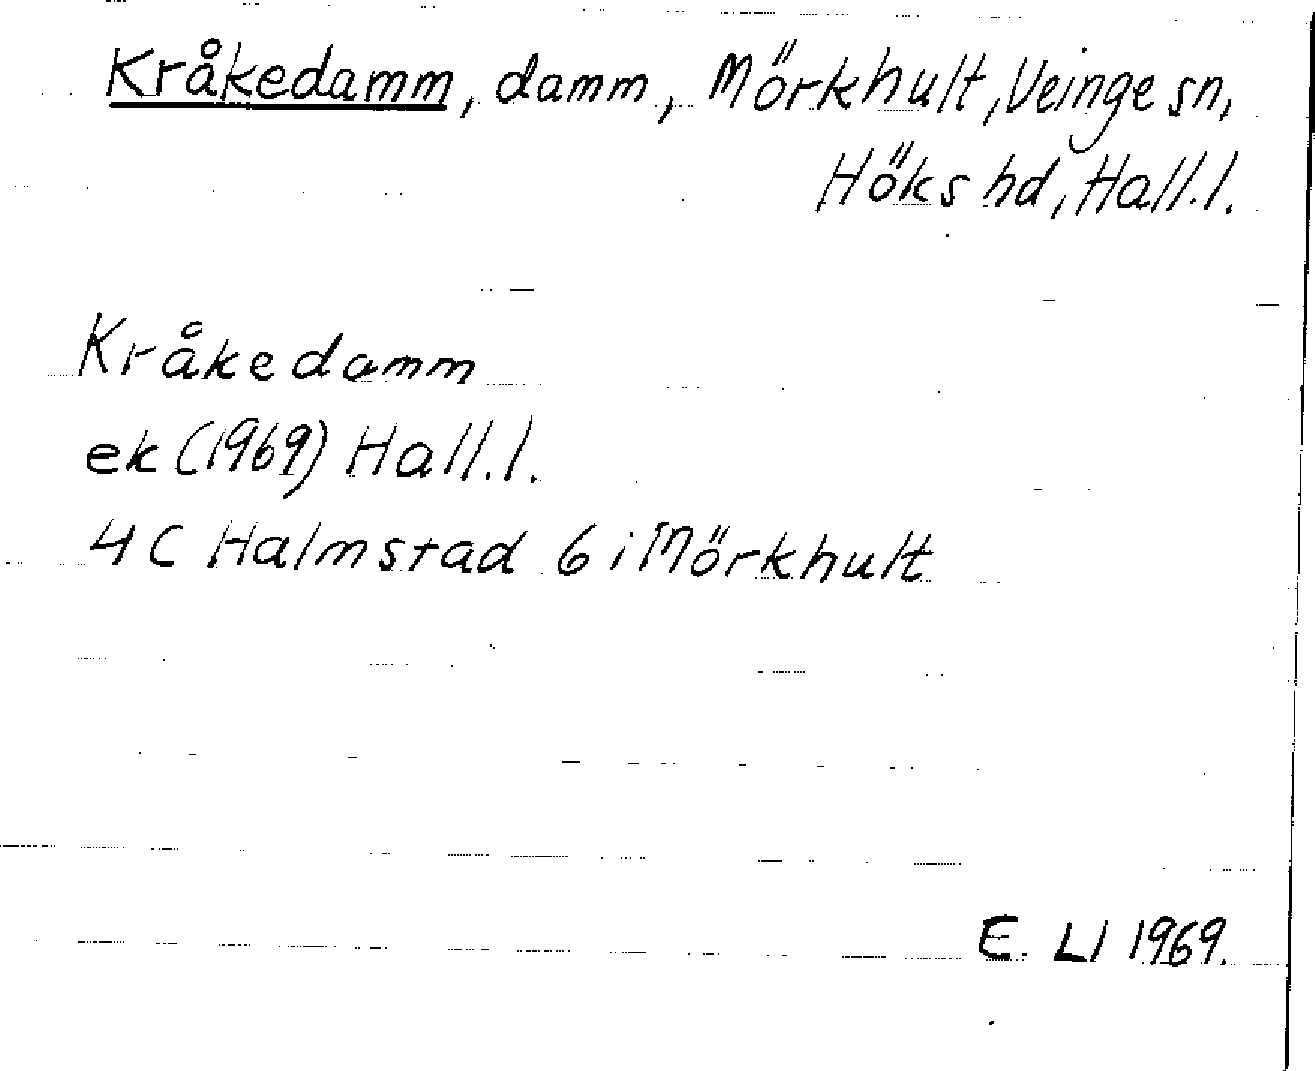 Kråkedamm, damm, Mörkhult, Veinge sn,
Höks hd, Hall.l.
Kråkedamm
ek (1969) Hall.l.
4 C Halmstad 6 i Mörkhult
E. Ll 1969.